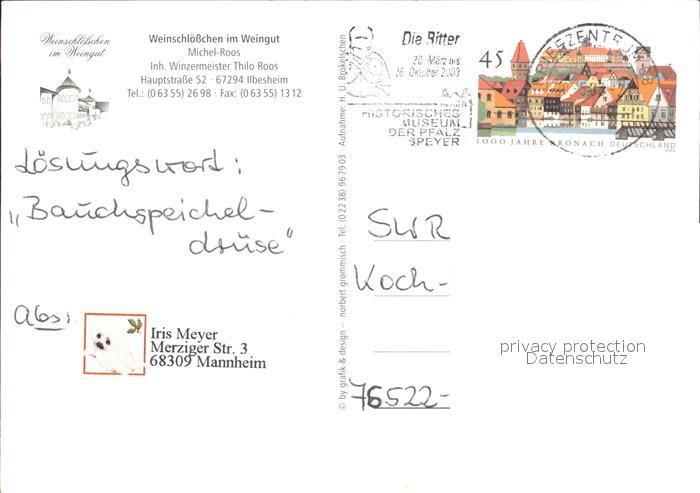 Weinschlößchen
im Weingut
Weinschlößchen im Weingut
Michel-Roos
Inh. Winzermeister Thilo Roos
Hauptstraße 52 · 67294 Ilbesheim
Tel.: (0 63 55) 26 98 · Fax: (0 63 55) 13 12
Lösungswort:
„Bauchspeichel-
drüse“
Abs:
Iris Meyer
Merziger Str. 3
68309 Mannheim
© by grafik & design – norbert grommisch Tel. (0 22 38) 96 79 03 Aufnahme: H. U.
Die Ritter
30. März bis
26. Oktober 2003
HISTORISCHES
MUSEUM
DER PFALZ
SPEYER
45
1000 JAHRE KRONACH DEUTSCHLAND
SWR
Koch-
76522-
privacy protection
Datenschutz